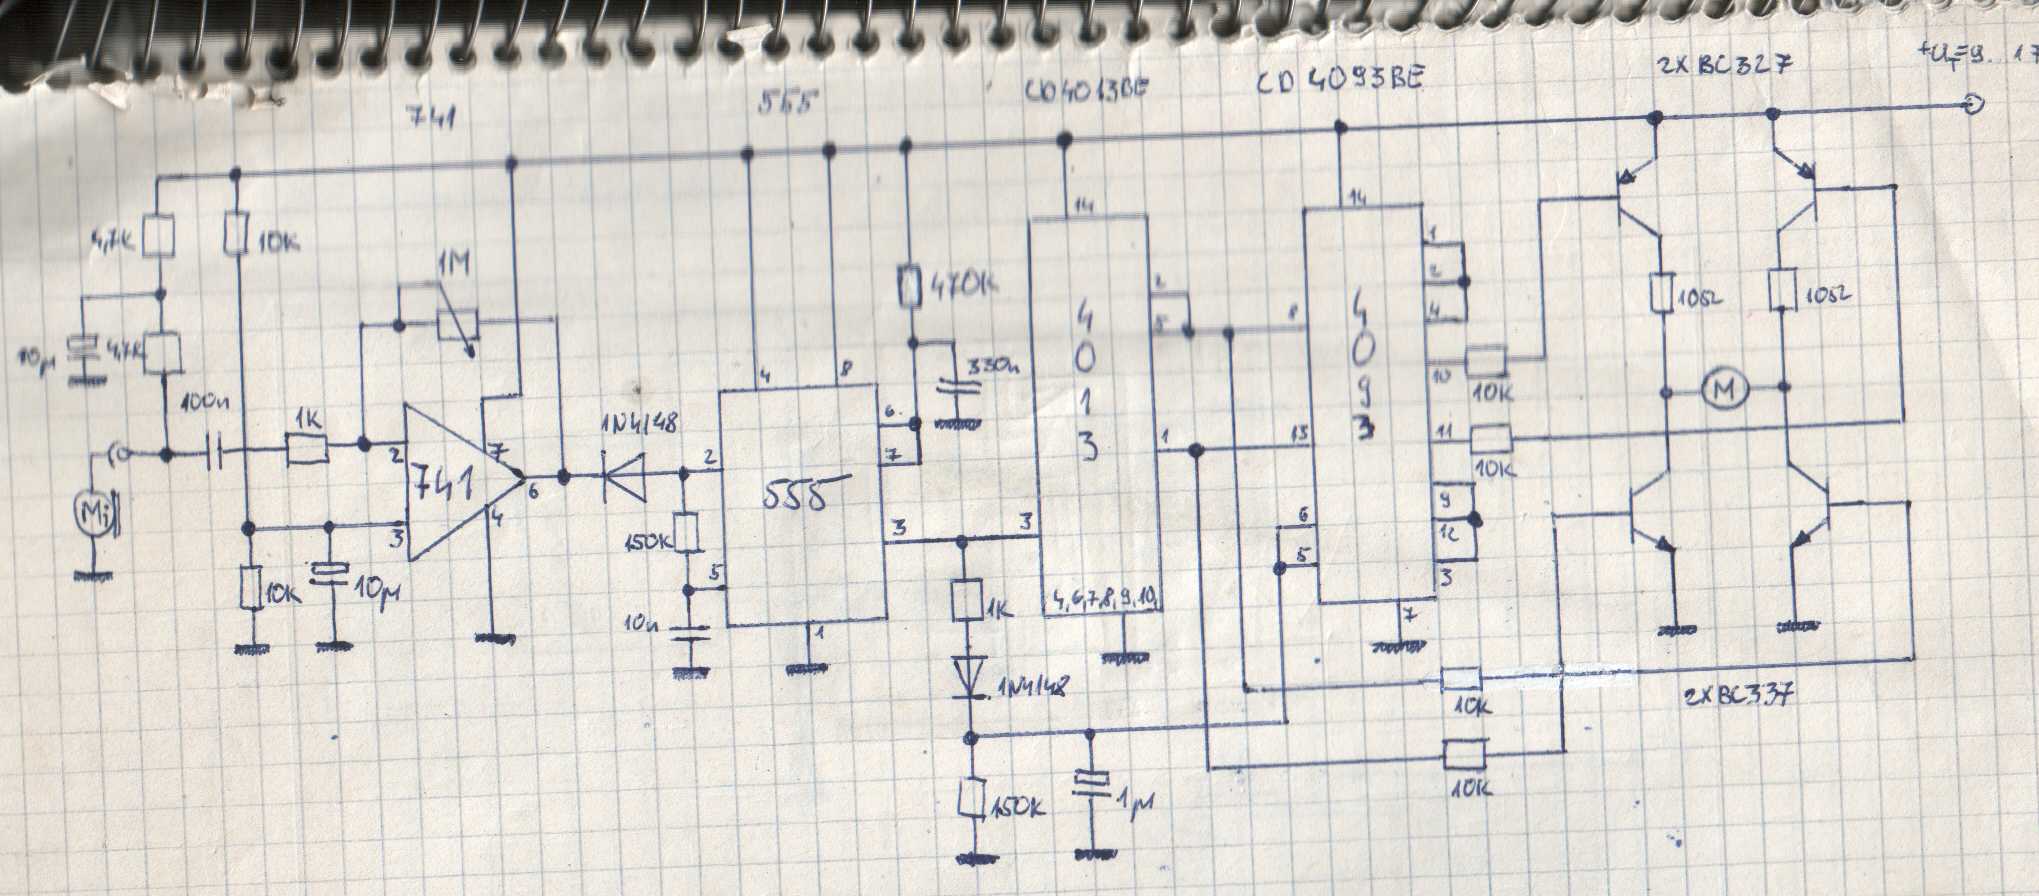 741
555
CD4013BE
CD 4093BE
2XBC327
+U_T=9..
4,7K
10K
1M
470K
10μ
4,7K
100n
1K
Mi
741
2
3
4
6
7
10K
10μ
1N4148
150K
10n
555
2
4
8
6
7
3
5
1
330n
1K
1N4148
150K
1μ
4013
14
5
1
3
4,6,7,8,9,10,
4093
14
8
13
6
5
1
2
4
10
11
9
12
3
7
10K
10K
10Ω
10Ω
M
10K
10K
2XBC337